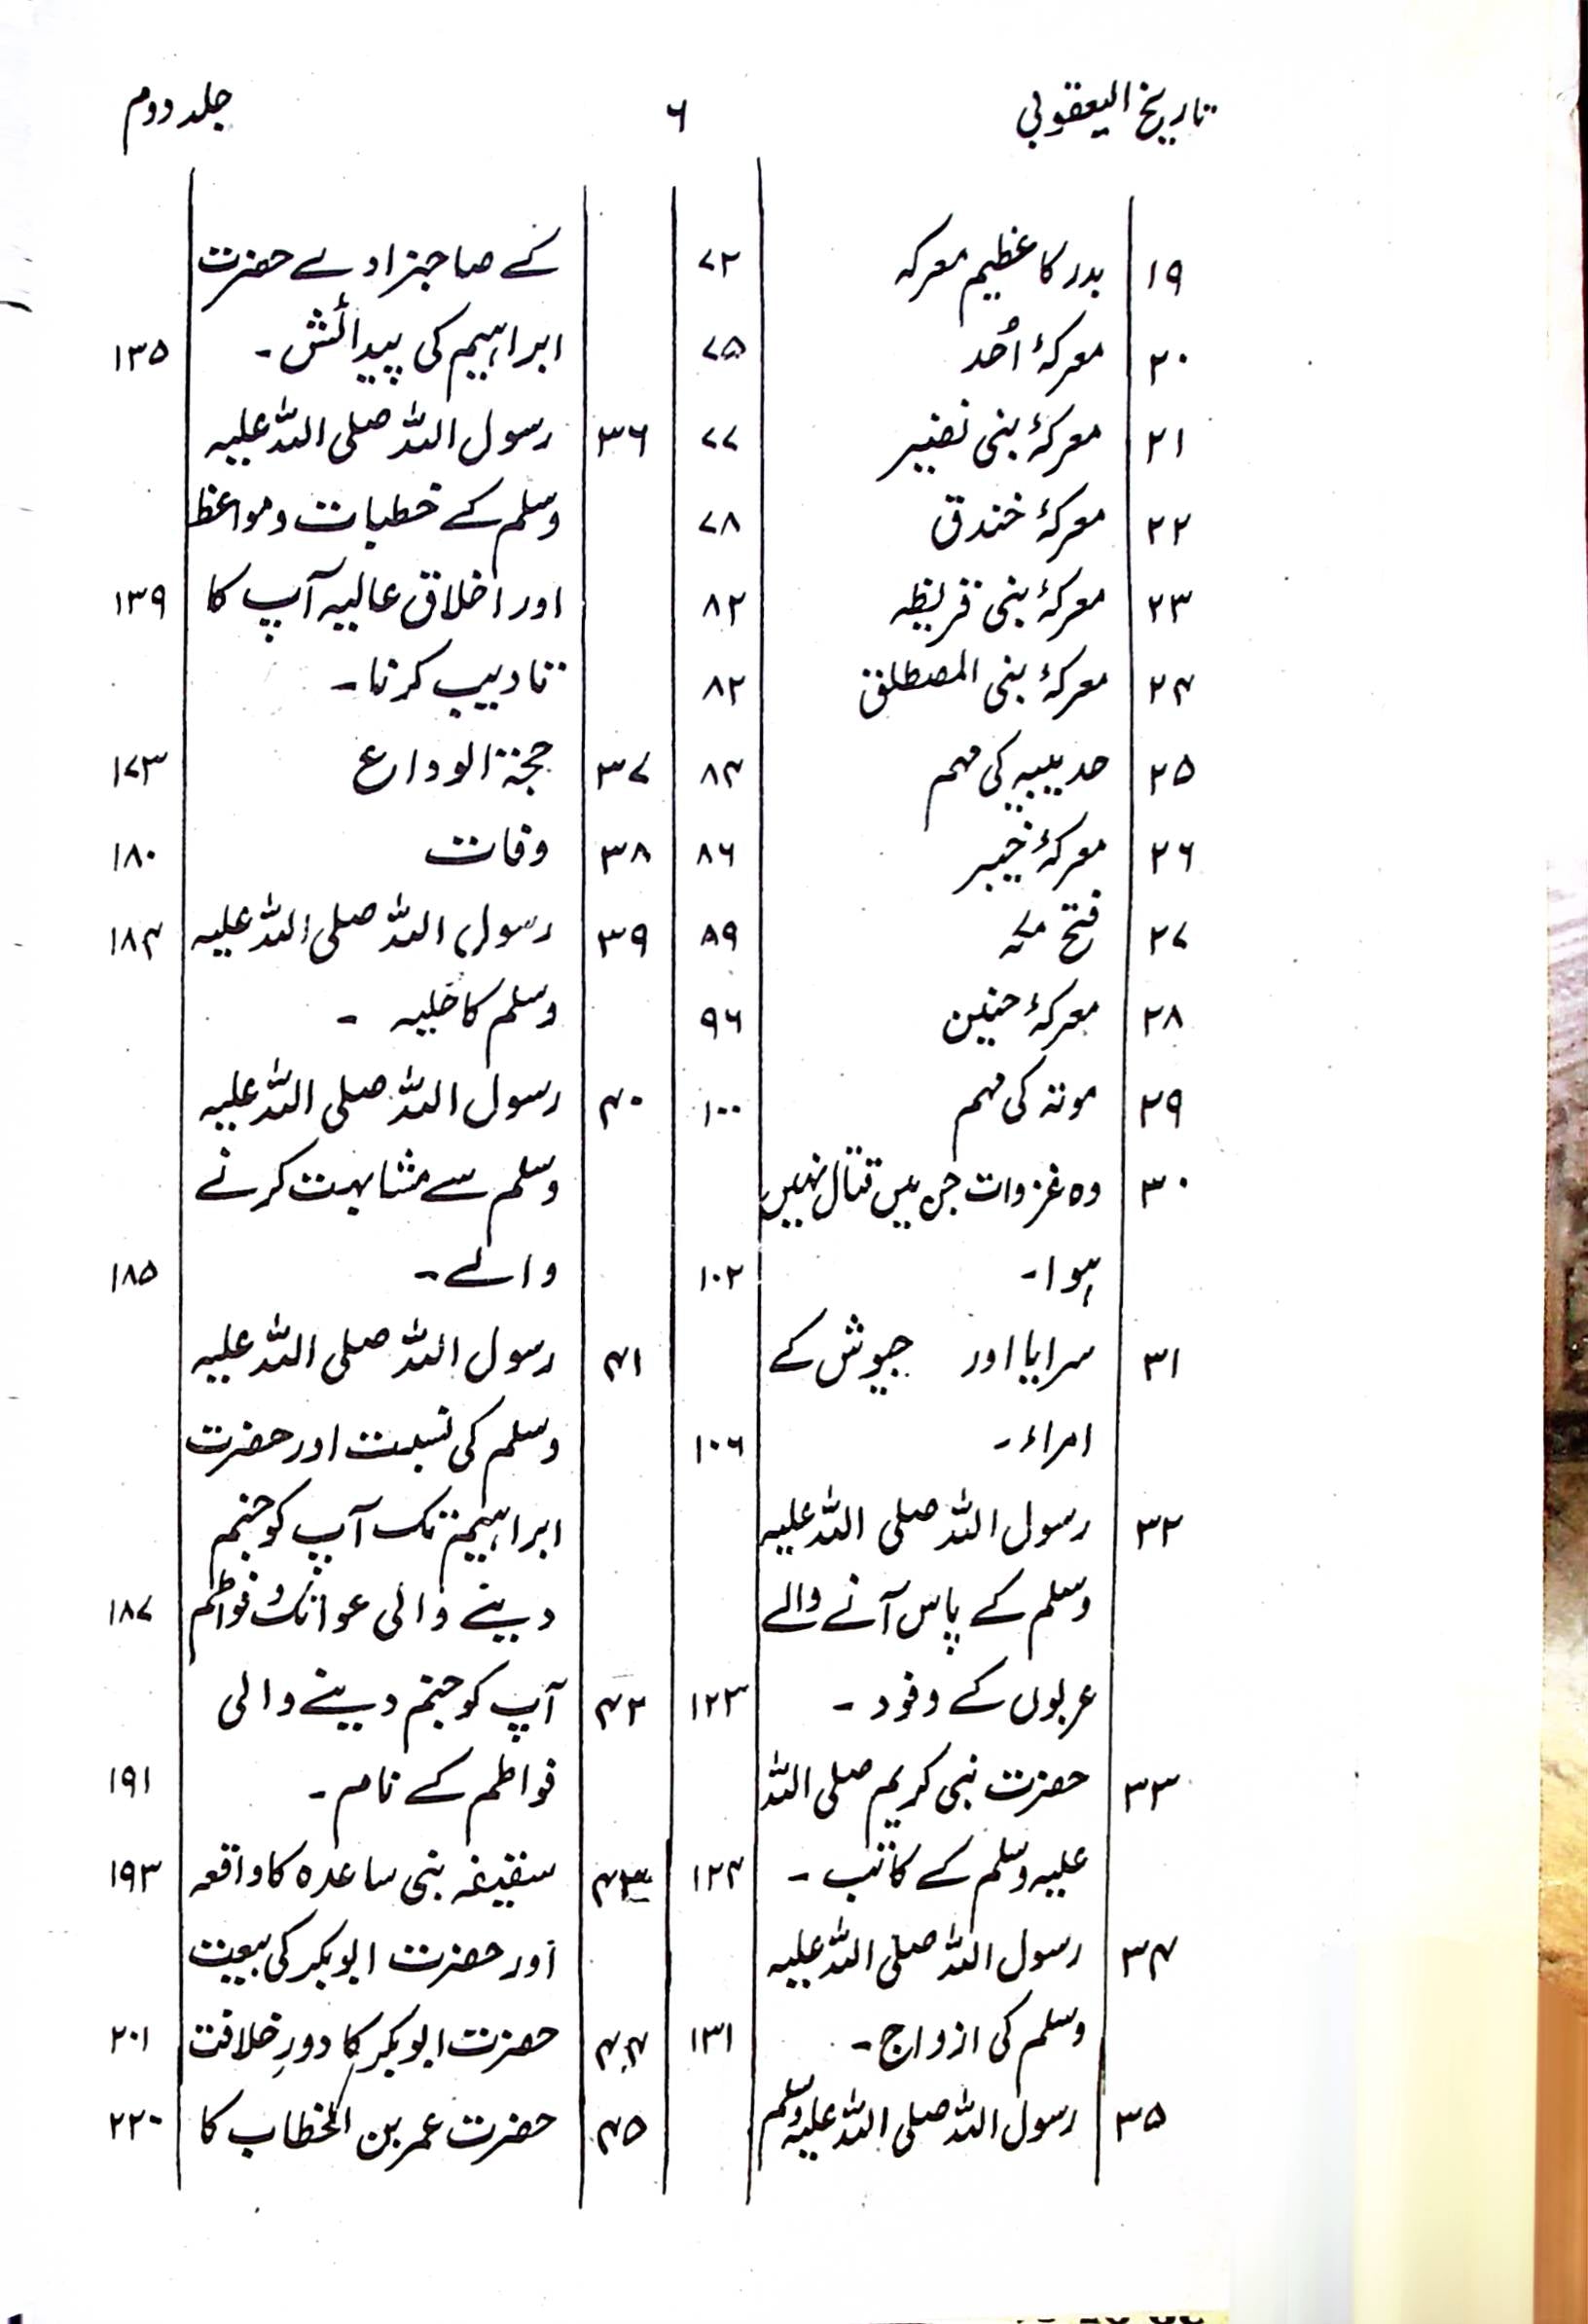 تاریخ الیعقوبی ۶ جلد دوم
۱۹ بدر کا عظیم معرکہ ۷۲
۲۰ معرکۂ اُحد ۷۵
۲۱ معرکۂ بنی نضیر ۷۷
۲۲ معرکۂ خندق ۷۸
۲۳ معرکۂ بنی قریظہ ۸۲
۲۴ معرکۂ بنی المصطلق ۸۲
۲۵ حدیبیہ کی مہم ۸۴
۲۶ معرکۂ خیبر ۸۶
۲۷ فتح مکہ ۸۹
۲۸ معرکۂ حنین ۹۶
۲۹ موتہ کی مہم ۱۰۰
۳۰ وہ غزوات جن میں قتال نہیں
ہوا۔ ۱۰۲
۳۱ سرایا اور جیوش کے
امراء۔ ۱۰۶
۳۲ رسول اللہ صلی اللہ علیہ
وسلم کے پاس آنے والے
عربوں کے وفود۔ ۱۲۳
۳۳ حضرت نبی کریم صلی اللہ
علیہ وسلم کے کاتب۔ ۱۲۴
۳۴ رسول اللہ صلی اللہ علیہ
وسلم کی ازواج۔ ۱۳۱
۳۵ رسول اللہ صلی اللہ علیہ وسلم
کے صاحبزادے حضرت
ابراہیم کی پیدائش۔ ۱۳۵
۳۶ رسول اللہ صلی اللہ علیہ
وسلم کے خطبات و مواعظ
اور اخلاق عالیہ آپ کا ۱۳۹
تادیب کرنا۔
۳۷ حجۃ الوداع ۱۷۳
۳۸ وفات ۱۸۰
۳۹ رسول اللہ صلی اللہ علیہ ۱۸۴
وسلم کا حلیہ۔
۴۰ رسول اللہ صلی اللہ علیہ
وسلم سے مشابہت کرنے
والے۔ ۱۸۵
۴۱ رسول اللہ صلی اللہ علیہ
وسلم کی نسبت اور حضرت
ابراہیم تک آپ کو جنم
دینے والی عواتک فواطم ۱۸۷
۴۲ آپ کو جنم دینے والی
فواطم کے نام۔ ۱۹۱
۴۳ سقیفہ بنی ساعدہ کا واقعہ ۱۹۳
اور حضرت ابوبکر کی بیعت
۴۴ حضرت ابوبکر کا دورِ خلافت ۲۰۱
۴۵ حضرت عمر بن الخطاب کا ۲۲۰